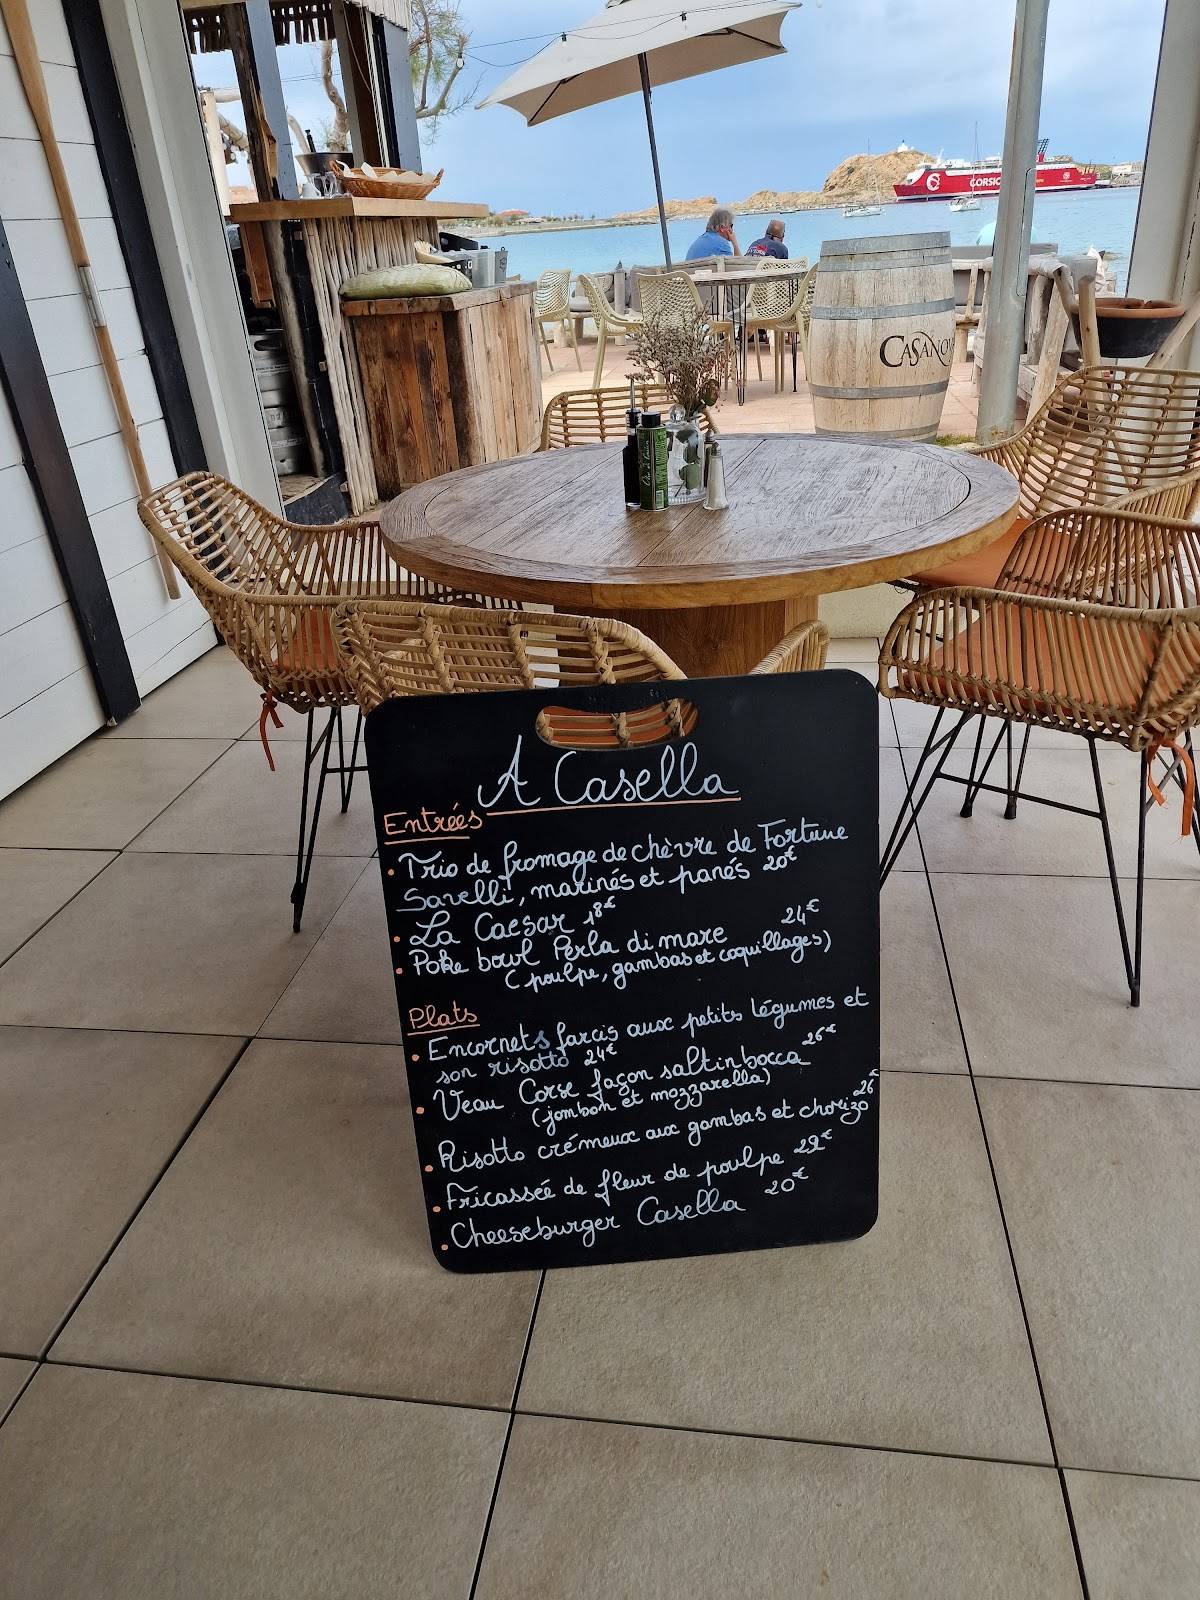 CORSIC
CASANOV
A Casella
Entrées
• Trio de fromage de chèvre de Fortune
Savelli, marinés et panés 20€
• La Caesar 18€
• Poke bowl Perla di mare 24€
(poulpe, gambas et coquillages)
Plats
• Encornets farcis aux petits légumes et
son risotto 24€
• Veau Corse façon saltinbocca 26€
(jambon et mozzarella)
• Risotto crémeux aux gambas et chorizo 26€
• Fricassée de fleur de poulpe 29€
• Cheeseburger Casella 20€